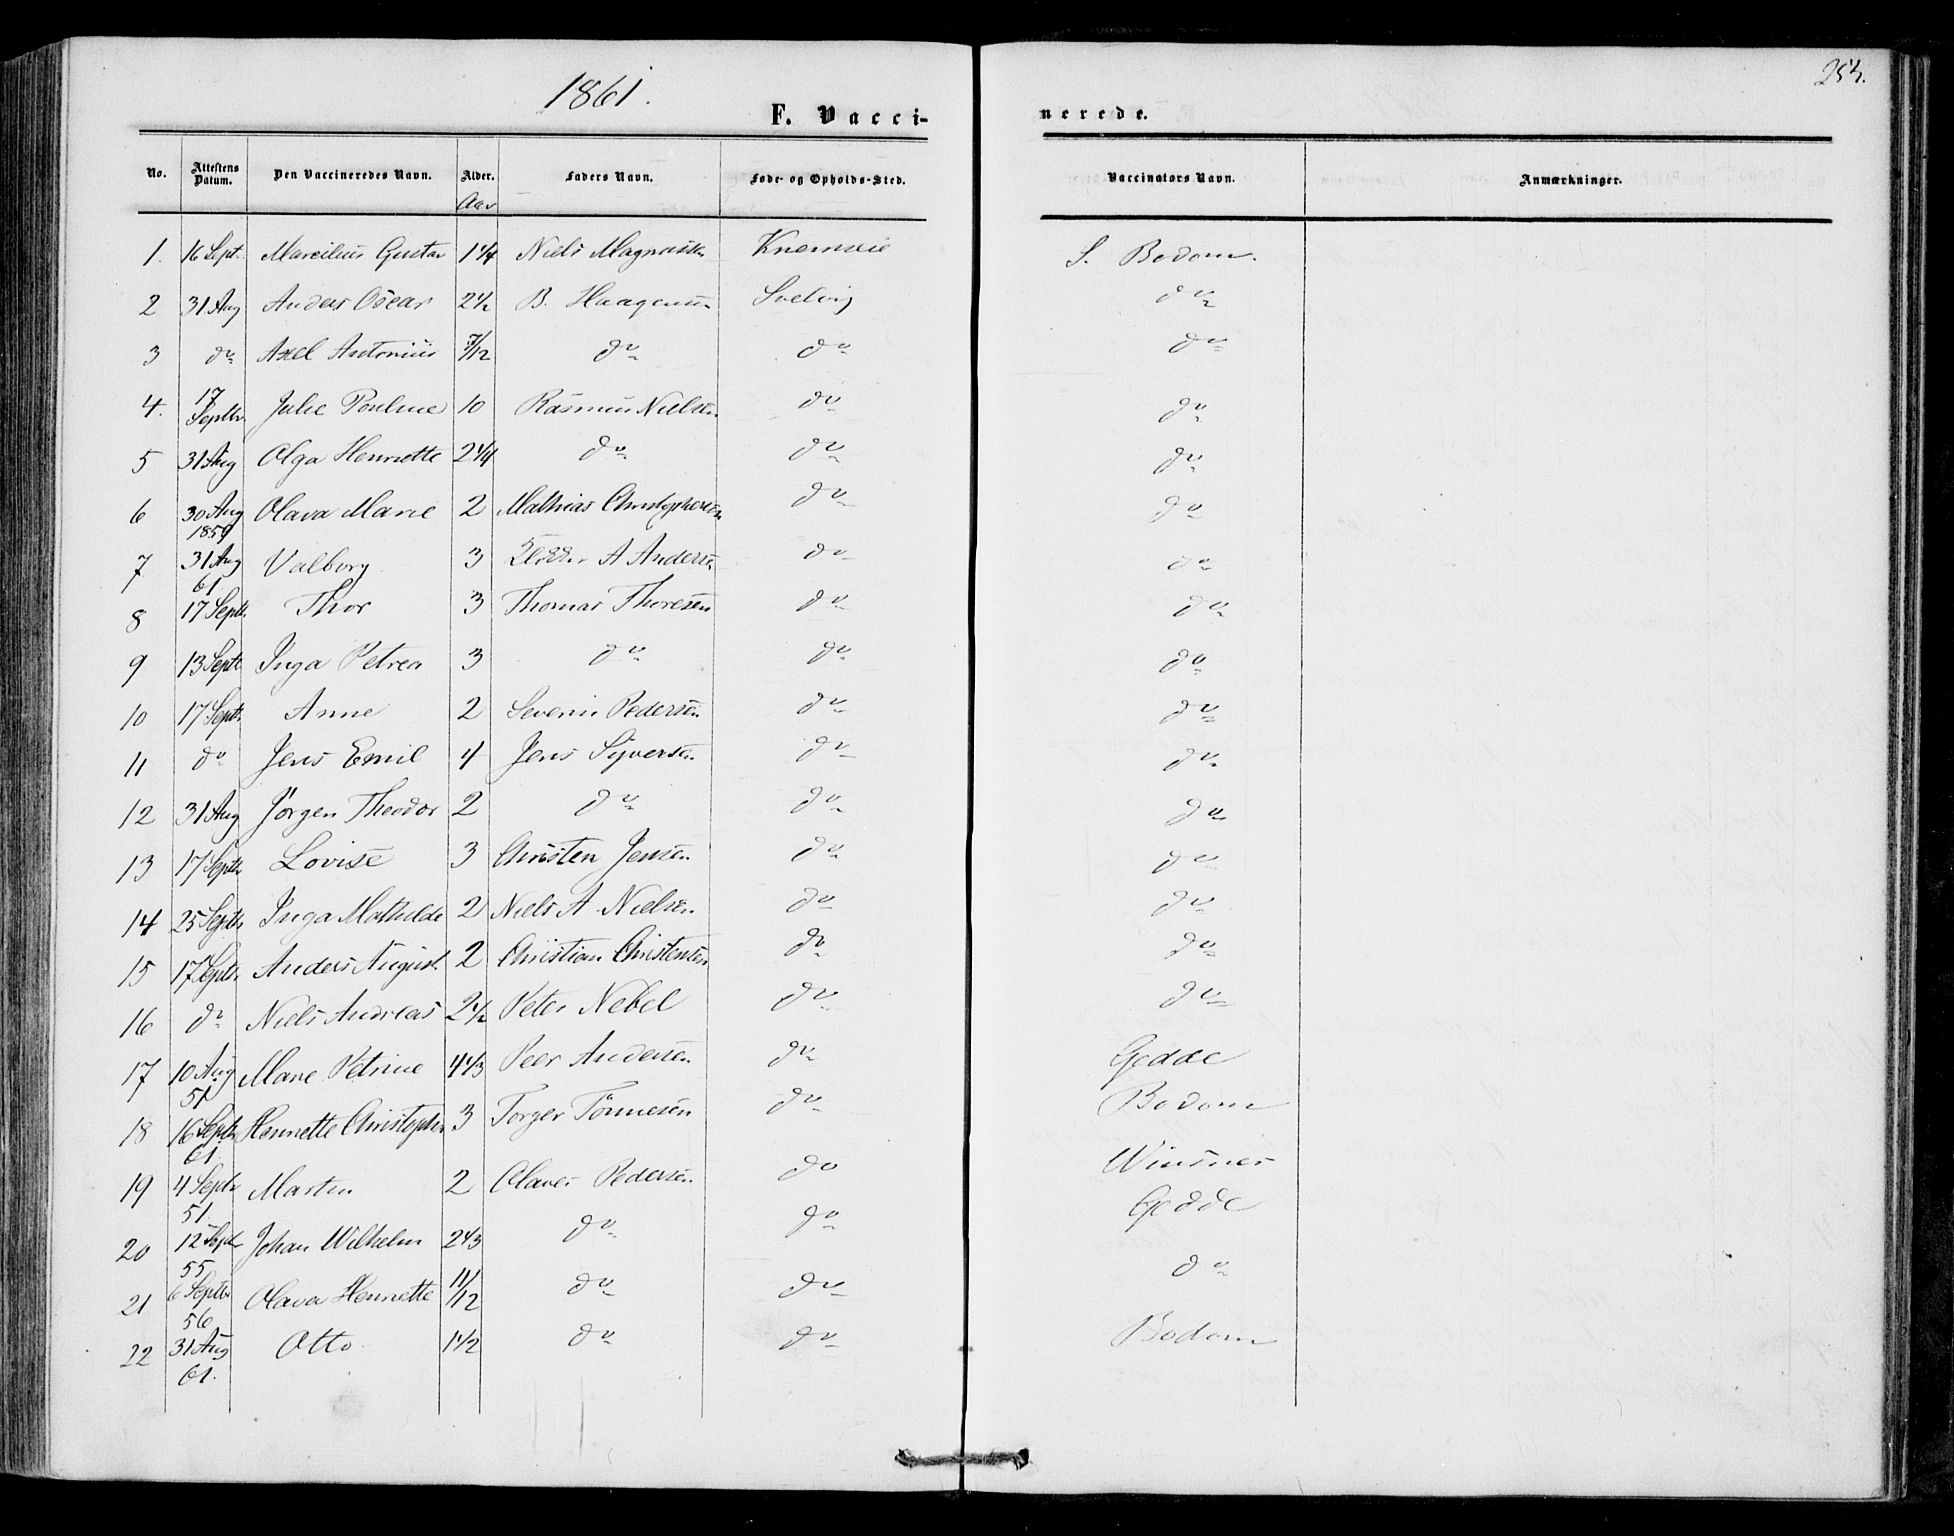 1861.
254.
F. Vacci-
nerede.
No. Attestens Datum. Den Vaccineredes Navn. Alder. Faders Navn. Føde- og Opholds-Sted. Vaccinatørs Navn. Anmærkninger.
Aar
1. 16 Sept. Marcilius Gustav 1 1/4 Niels S. Bodom.
2 31 Aug Anders Oscar 2 1/2 B. Haagensen Svelvig do
3 do Axel Antonius 7/12 do do do
4. 17 Septbr. Julie Pouline 10 Rasmus Nielsen do do
5 31 Aug Olga Henriette 2 1/4 do do do
6 30 Aug 1859 Olava Marie 2 Mathias Christophersen do do
7 31 Aug 61 Valborg 3 A Andersen do do
8 17 Septb. Thor 3 Thomas Thoresen do do
9 13 Septb Inga Petrea 3 do do do
10 17 Septb Anne 2 Severin Pedersen do do
11 do Jens Emil 4 Jens Syversen do do
12 31 Aug Jørgen Theodor 2 do do do
13 17 Septb Lovise 3 Christen Jensen do do
14 25 Septb Inga Mathilde 2 Niels A. Nielsen do do
15 17 Septb Anders August 2 Christian Christensen do do
16 do Niels Andreas 2 1/2 Peter Nebel do do
17 10 Aug 51 Maren Petrine 4 1/3 Peer Andersen do Gedde
18 16 Septb 61. Henriette 3 Torger Tönnesen do Bodom
19 4 Septb 51. Marten 2 Olaves Pedersen do Winsnes
Gedde
20 12 Septb 55 Johan Wilhelm 2 1/3 do do
do
21 6 Septbr 56 Olava Henriette 11/12 do do
22 31 Aug 61. Otto 1 1/2 do do Bodom